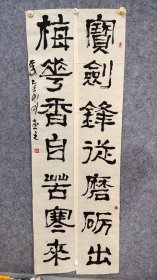 寶劍鋒從磨礪出
梅花香自苦寒來